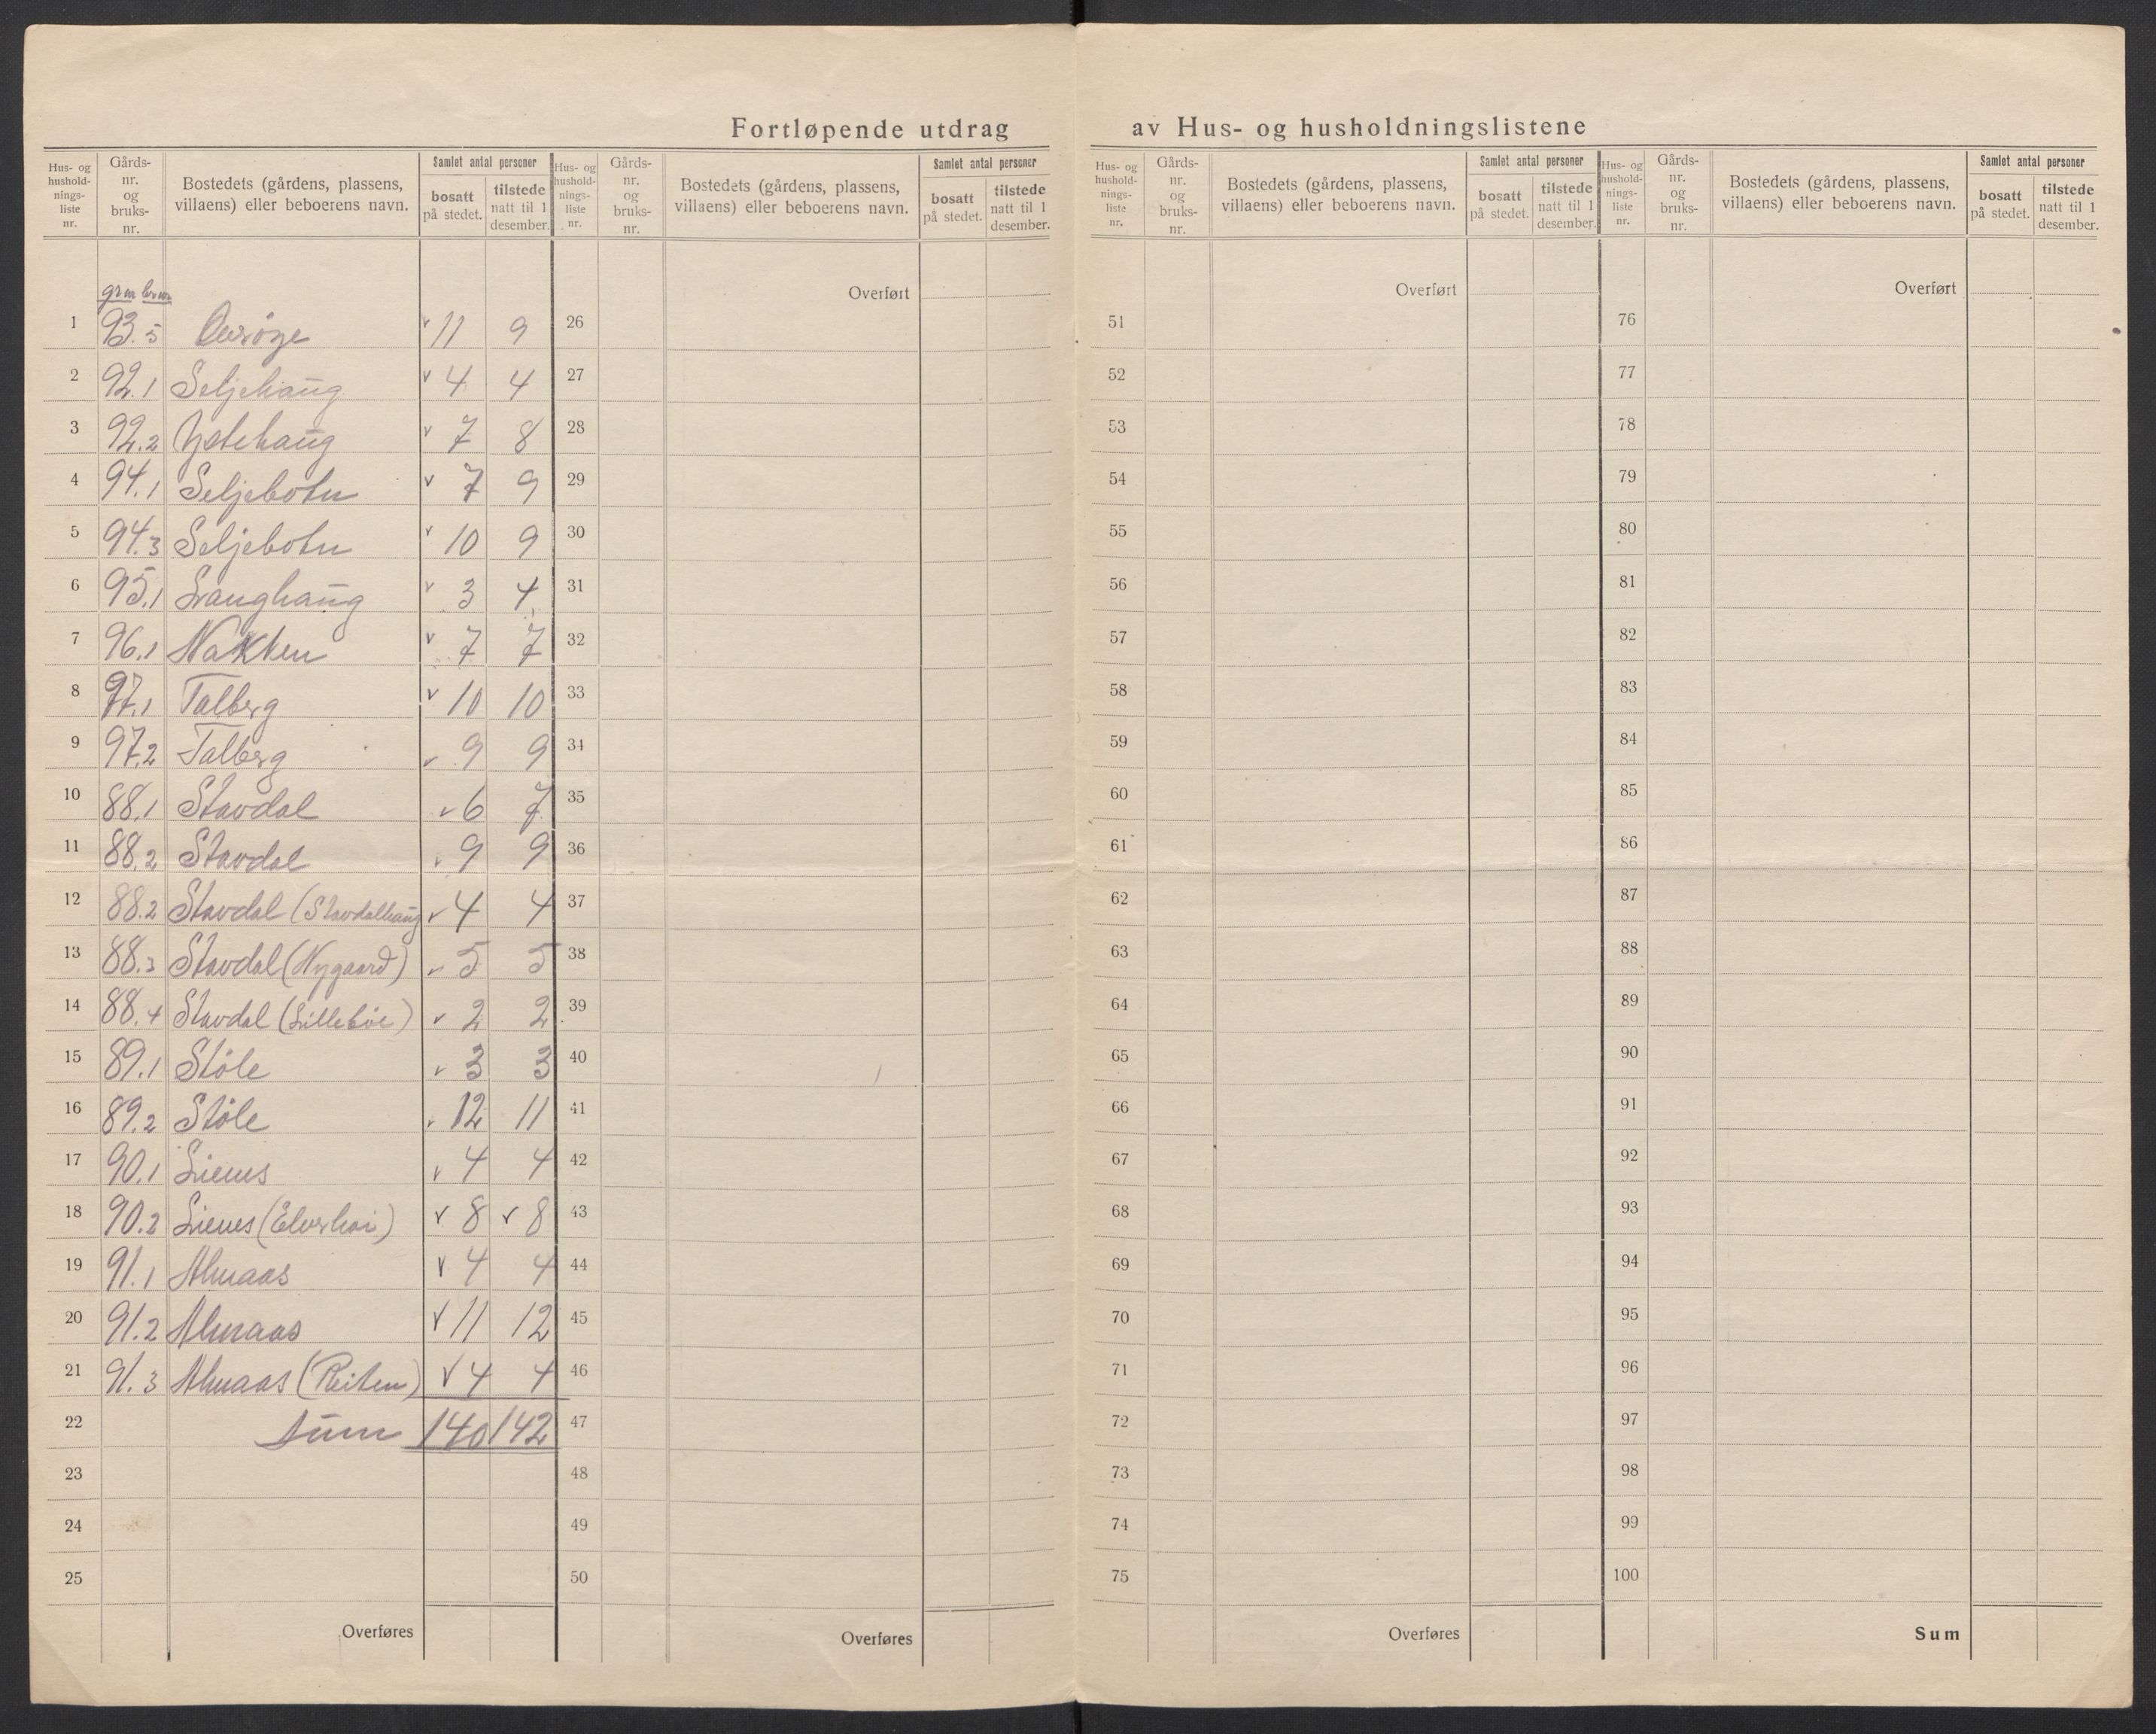 Fortløpende utdrag av Hus- og husholdningslistene
Hus- og hushold- nings- liste nr. Gårds- nr. og bruks- nr. Bostedets (gårdens, plassens, villaens) eller beboerens navn. Samlet antal personer bosatt på stedet. tilstede natt til 1 desember.
Hus- og hushold- nings- liste nr. Gårds- nr. og bruks- nr. Bostedets (gårdens, plassens, villaens) eller beboerens navn. Samlet antal personer bosatt på stedet. tilstede natt til 1 desember.
Hus- og hushold- nings- liste nr. Gårds- nr. og bruks- nr. Bostedets (gårdens, plassens, villaens) eller beboerens navn. Samlet antal personer bosatt på stedet. tilstede natt til 1 desember.
Hus- og hushold- nings- liste nr. Gårds- nr. og bruks- nr. Bostedets (gårdens, plassens, villaens) eller beboerens navn. Samlet antal personer bosatt på stedet. tilstede natt til 1 desember.
Overført Overført Overført
1 93.5 11 9 26 51 76
2 92.1 Seljehaug 4 4 27 52 77
3 92.2 7 8 28 53 78
4 94.1 Seljebotn 7 9 29 54 79
5 94.3 Seljebotn 10 9 30 55 80
6 95.1 Langhaug 3 4 31 56 81
7 96.1 Nakken 7 7 32 57 82
8 97.1 Talberg 10 10 33 58 83
9 97.2 Talberg 9 9 34 59 84
10 88.1 Stavdal 6 7 35 60 85
11 88.2 Stavdal 9 9 36 61 86
12 88.2 Stavdal (Stavdalhaug 4 4 37 62 87
13 88.3 Stavdal (Nygaard) 5 5 38 63 88
14 88.4 Stavdal (Lilleböe) 2 2 39 64 89
15 89.1 Stöle 3 3 40 65 90
16 89.2 Stöle 12 11 41 66 91
17 90.1 Lienes 4 4 42 67 92
18 90.2 Lienes (Elverhoi) 8 8 43 68 93
19 91.1 Almaas 4 4 44 69 94
20 91.2 Almaas 11 12 45 70 95
21 91.3 Almaas (Reiten) 4 4 46 71 96
22 Sum 140 142 47 72 97
23 48 73 98
24 49 74 99
25 50 75 100
Overføres Overføres Overføres Sum